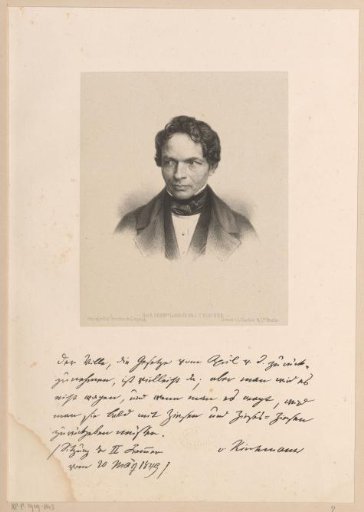 Der Wille, die Gesetze vom April v. J. zurück-
zunehmen, ist vielleicht da; aber man wird es
nicht wagen, und wenn man es wagt, wird
man sie bald mit Zinsen und Zinses-Zinsen
zurückgeben müssen.
(Sitzung der II Kammer
vom 20 März 1849)
v Kirchmann